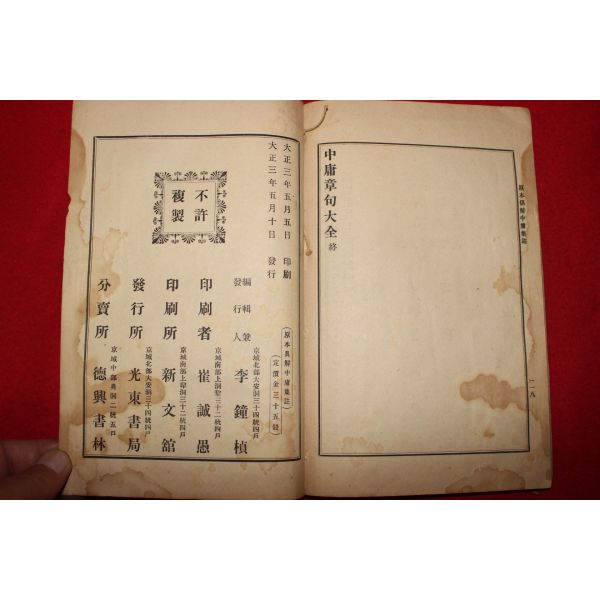 原本具解中庸集註
一一八
中庸章句大全 終
大正三年五月五日 印刷
大正三年五月十日 發行
不許
複製
(原本具解中庸集註)
(定價金三十五錢)
京城北部大安洞三十四統四戶
編輯兼
發行人 李鐘楨
京城南部上犂洞三十二統四戶
印刷者 崔誠愚
京城南部上犂洞三十二統四戶
印刷所 新文舘
京城北部大安洞三十四統四戶
發行所 光東書局
京城中部典洞二統五戶
分賣所 德興書林